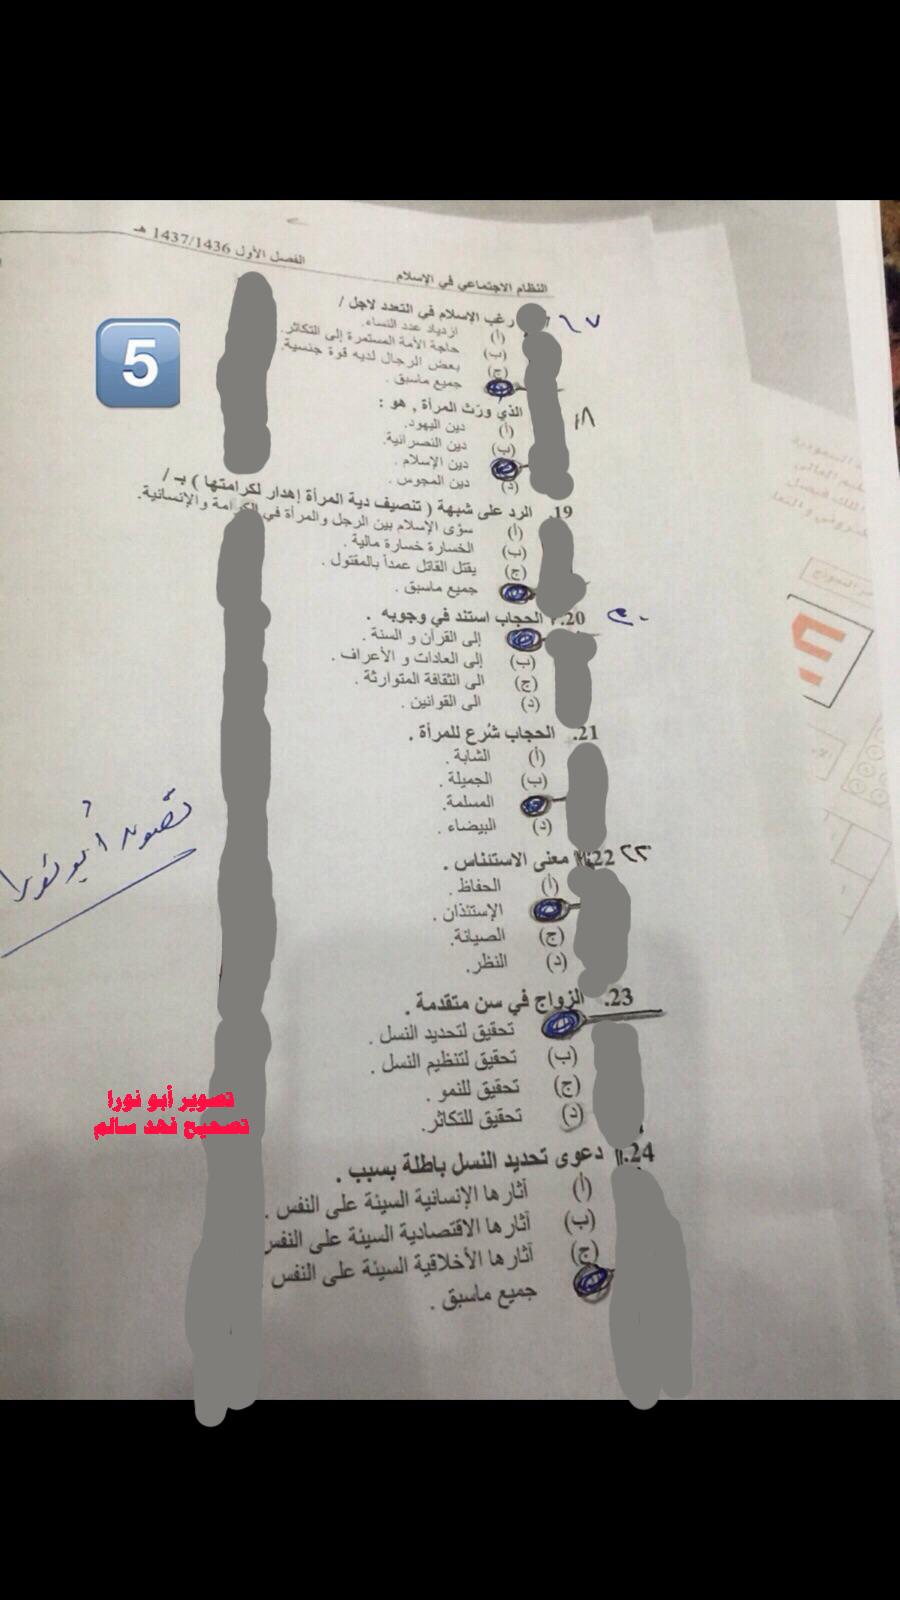 النظام الاجتماعي في الإسلام
الفصل الأول 1437/1436 هـ
5
١٧ رغب الإسلام في التعدد لاجل /
(أ) ازدياد عدد النساء.
(ب) حاجة الأمة المستمرة إلى التكاثر.
(ج) بعض الرجال لديه قوة جنسية.
جميع ماسبق .
١٨ الذي ورّث المرأة , هو :
(أ) دين اليهود.
(ب) دين النصرانية.
دين الإسلام .
(د) دين المجوس .
19. الرد على شبهة ( تنصيف دية المرأة إهدار لكرامتها ) بـ /
(أ) سوّى الإسلام بين الرجل والمرأة في الكرامة والإنسانية.
(ب) الخسارة خسارة مالية .
(ج) يقتل القاتل عمداً بالمقتول .
جميع ماسبق .
20. الحجاب استند في وجوبه . ٢٠
إلى القرآن و السنة .
(ب) إلى العادات و الأعراف .
(ج) الى الثقافة المتوارثة .
(د) الى القوانين .
21. الحجاب شُرع للمرأة .
(أ) الشابة .
(ب) الجميلة .
المسلمة.
(د) البيضاء .
22 معنى الاستئناس . ٢٢
(أ) الحفاظ .
الإستئذان .
(ج) الصيانة.
(د) النظر.
23. الزواج في سن متقدمة .
تحقيق لتحديد النسل .
(ب) تحقيق لتنظيم النسل .
(ج) تحقيق للنمو .
(د) تحقيق للتكاثر.
24. دعوى تحديد النسل باطلة بسبب .
(أ) آثارها الإنسانية السيئة على النفس .
(ب) آثارها الاقتصادية السيئة على النفس
(ج) آثارها الأخلاقية السيئة على النفس
جميع ماسبق .
تصوير أبو نورا
تصوير أبو نورا
تصحيح فهد سالم